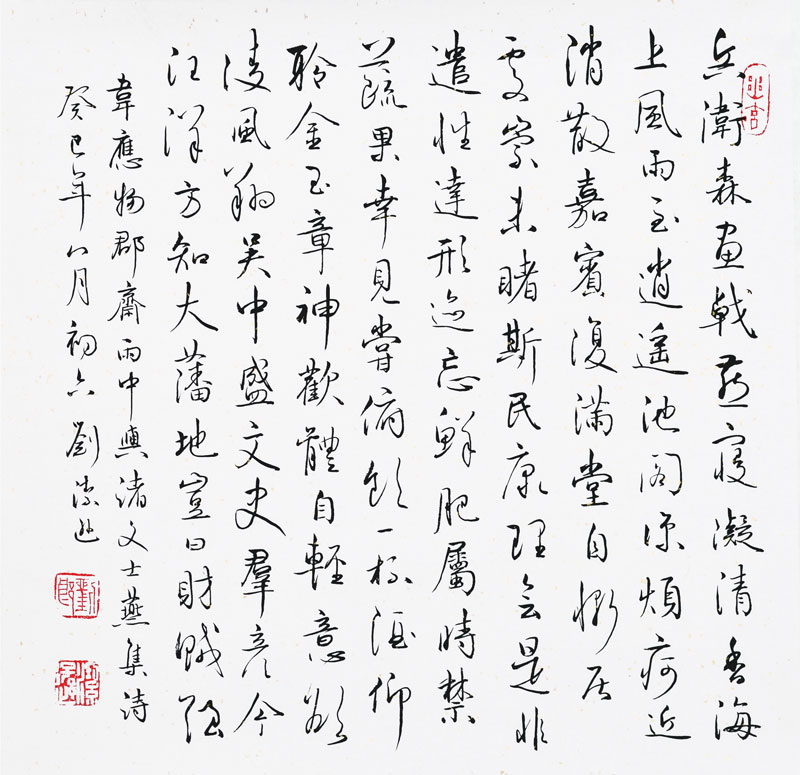 兵衛森畫戟燕寢凝清香海
上風雨至逍遙池閣涼煩疴近
消散嘉賓復滿堂自慚居
處崇未睹斯民康理會是非
遣性達形迹忘鮮肥屬時禁
蔬果幸見嘗俯飲一杯酒仰
聆金玉章神歡體自輕意欲
凌風翔吳中盛文史羣彥今
汪洋方知大藩地豈曰財賦強
韋應物郡齋雨中與諸文士燕集詩
癸巳年八月初六劉